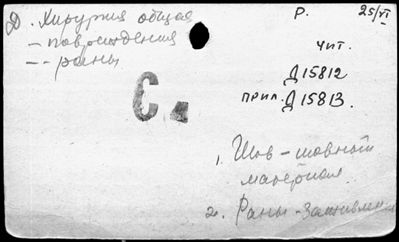 Д. Хирургия общая
– повреждения
– – раны
Р. 25/VI
чит.
Д 15812
прил. Д 15813.
С.
1. Шов – шовный
материал
2. Раны – Заживление